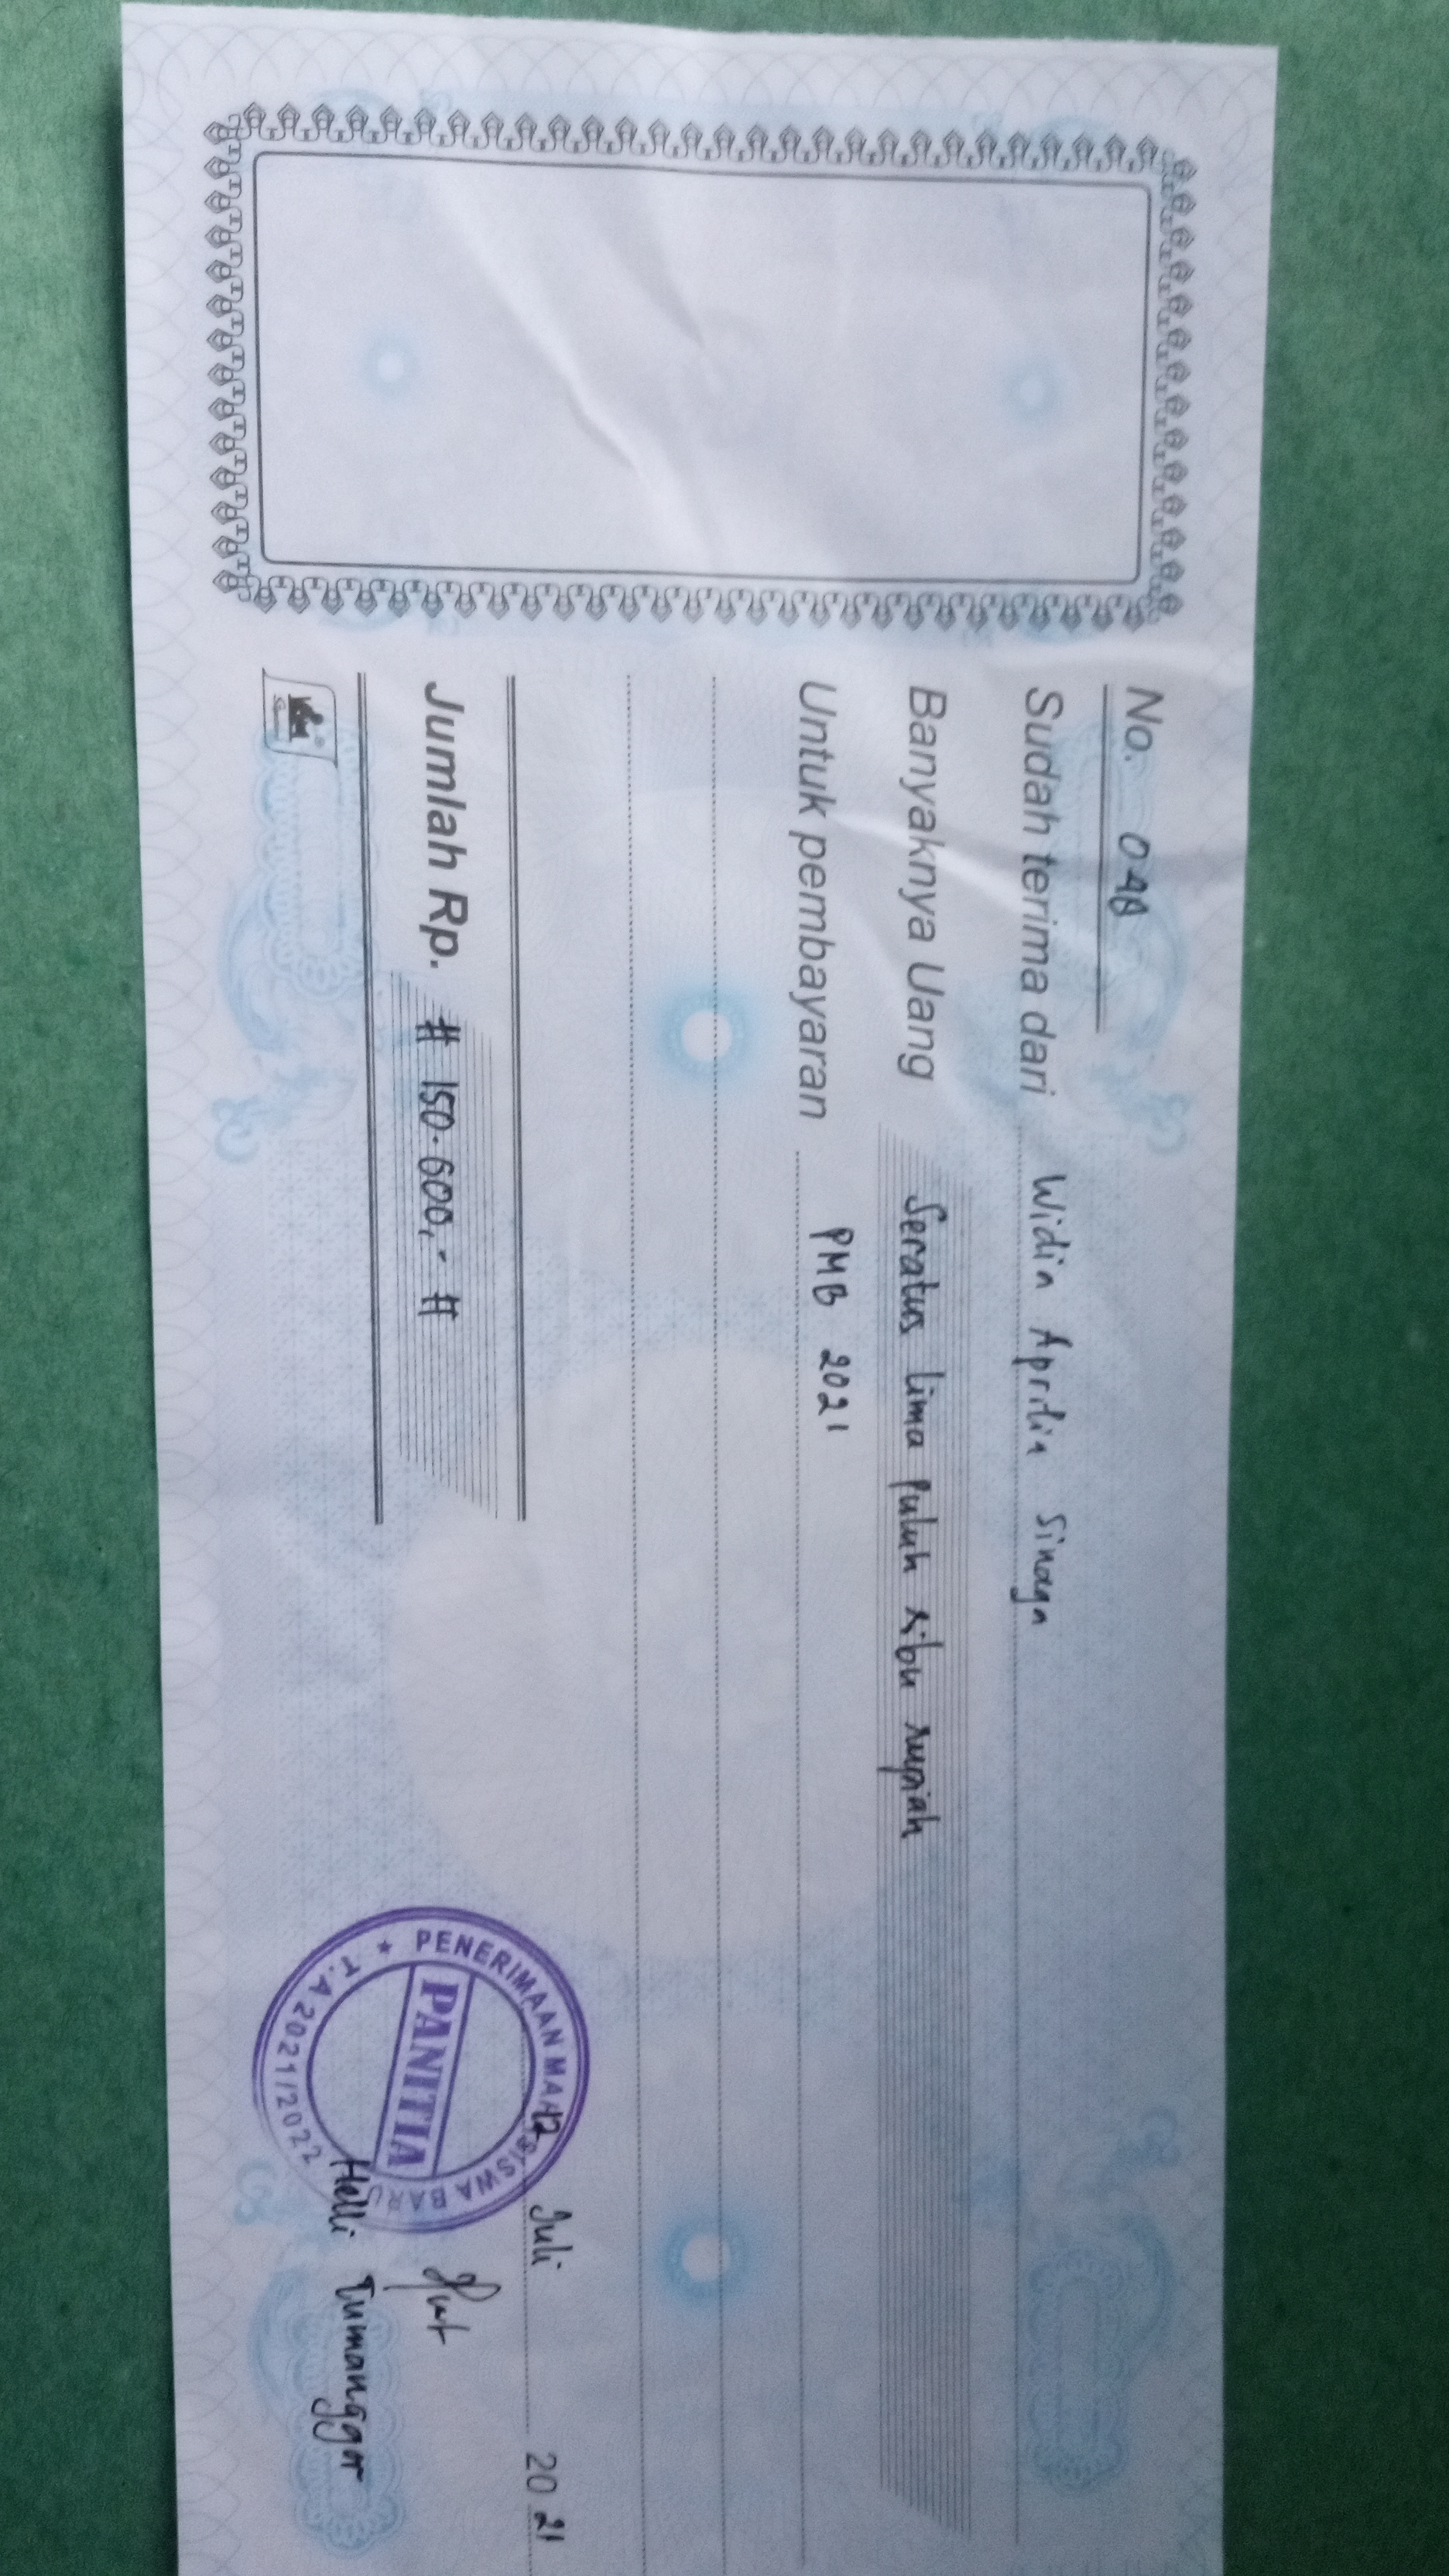 No. 048
Sudah terima dari Widia Aprilia Sinaga
Banyaknya Uang Seratus lima puluh ribu rupiah
Untuk pembayaran PMB 2021
12 Juli 20 21
Jumlah Rp. # 150.600,- #
PENERIMAAN MAHASISWA BARU
PANITIA
★ T.A 2021/2022
Helli Tumanggor